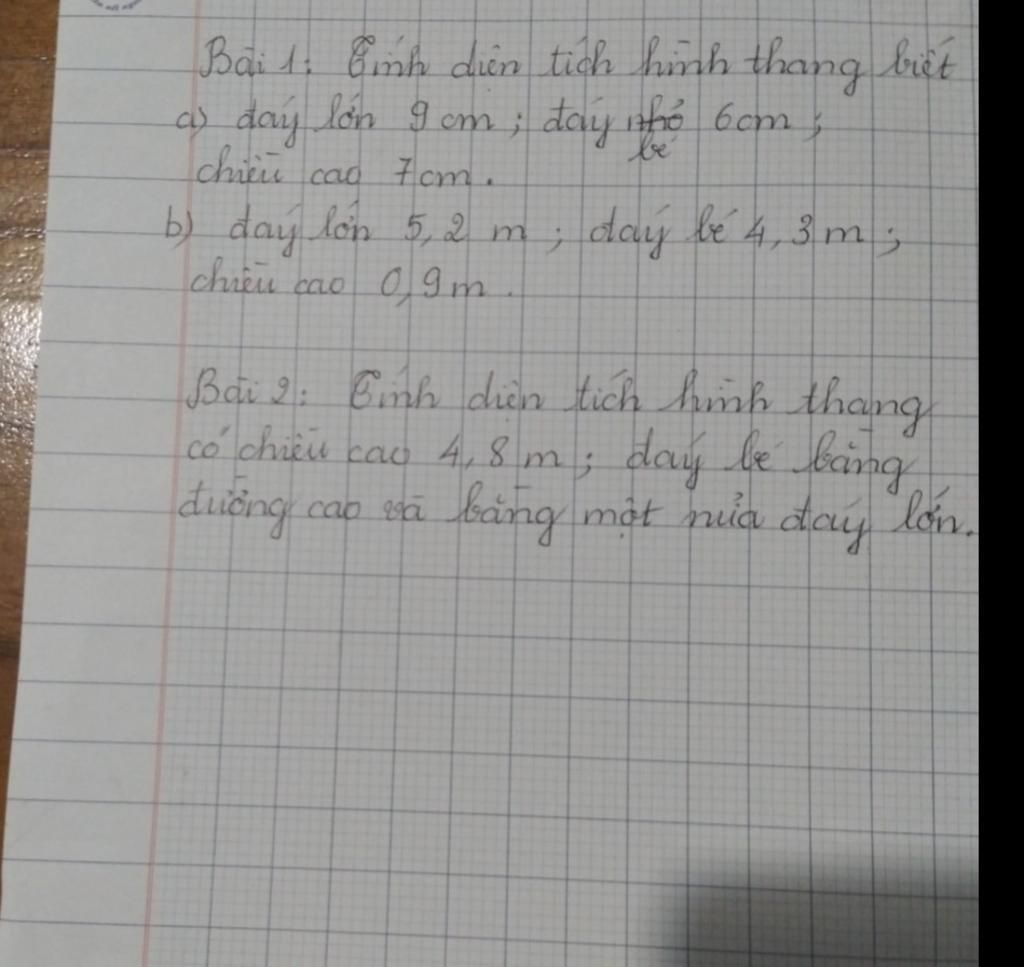 Bài 1: Tính diện tích hình thang biết
a) đáy lớn 9 cm; đáy nhỏ 6cm;
bé
chiều cao 7cm.
b) đáy lớn 5,2 m; đáy bé 4,3 m;
chiều cao 0,9m.
Bài 2: Tính diện tích hình thang
có chiều cao 4,8 m; đáy bé bằng
đường cao và bằng một nửa đáy lớn.